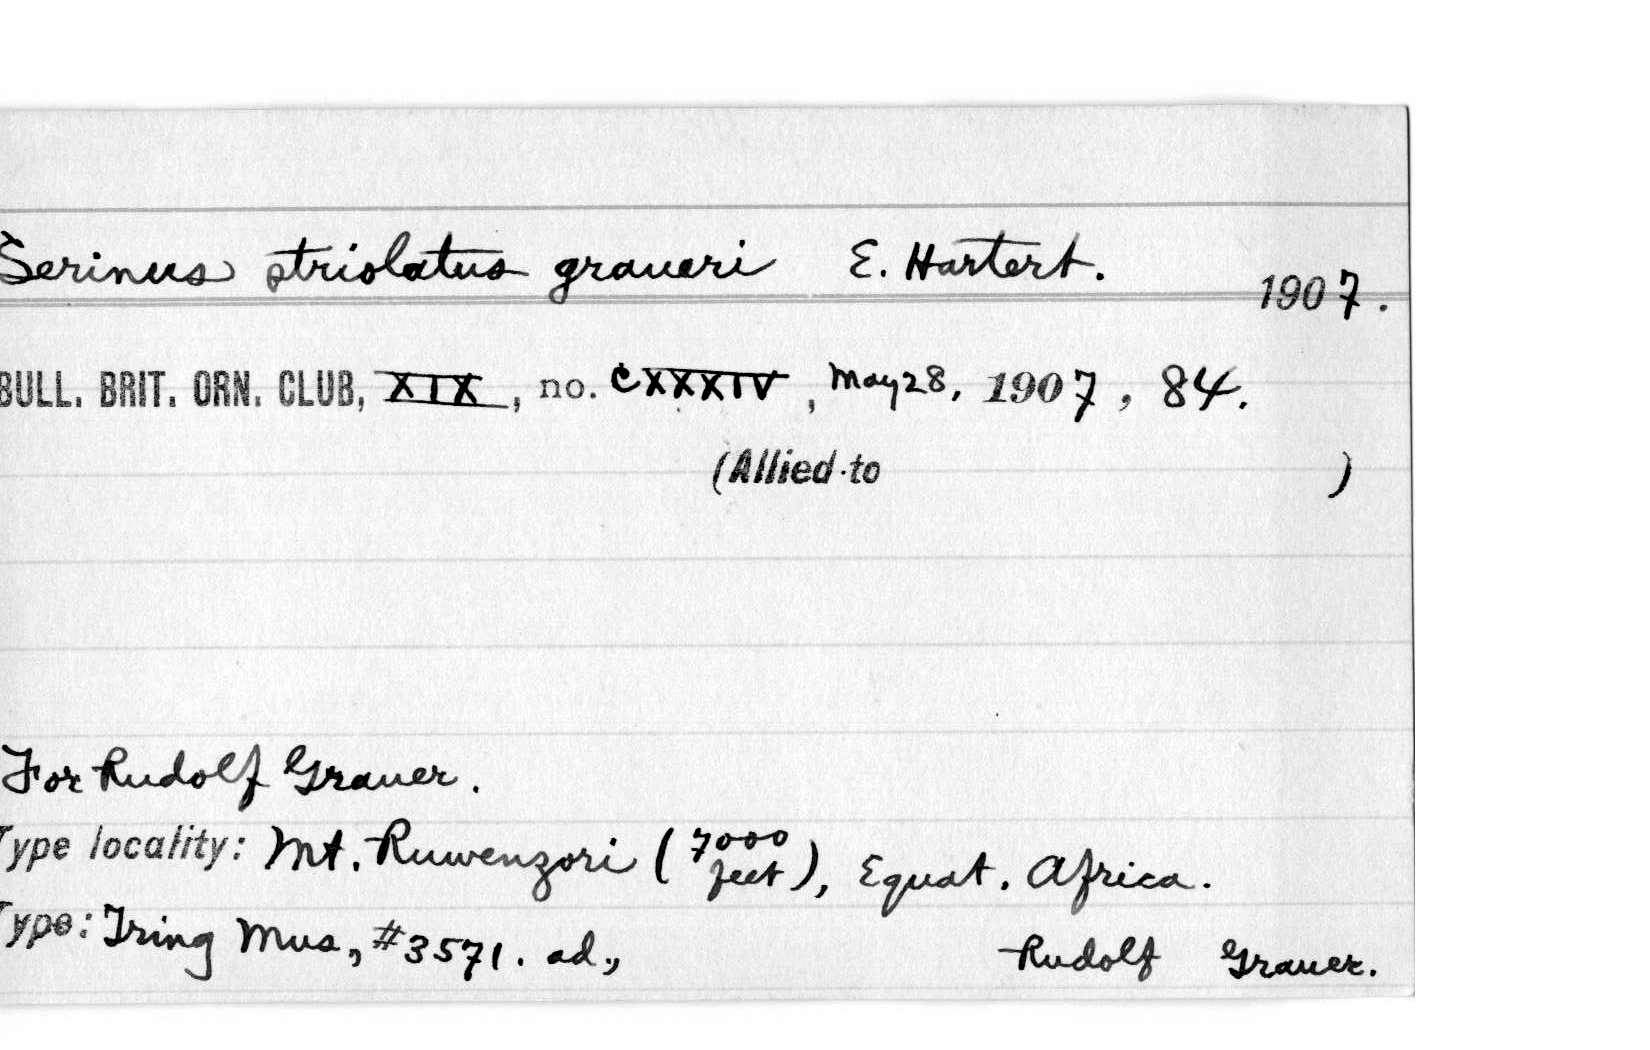 Serinus striolatus graueri E. Hartert. 1907.
BULL. BRIT. ORN. CLUB, XIX, no. CXXXIV, May 28, 1907, 84.
(Allied to )
For Rudolf Grauer.
Type locality: Mt. Ruwenzori (7000 feet), Equat. Africa.
Type: Tring Mus, #3571. ad., Rudolf Grauer.